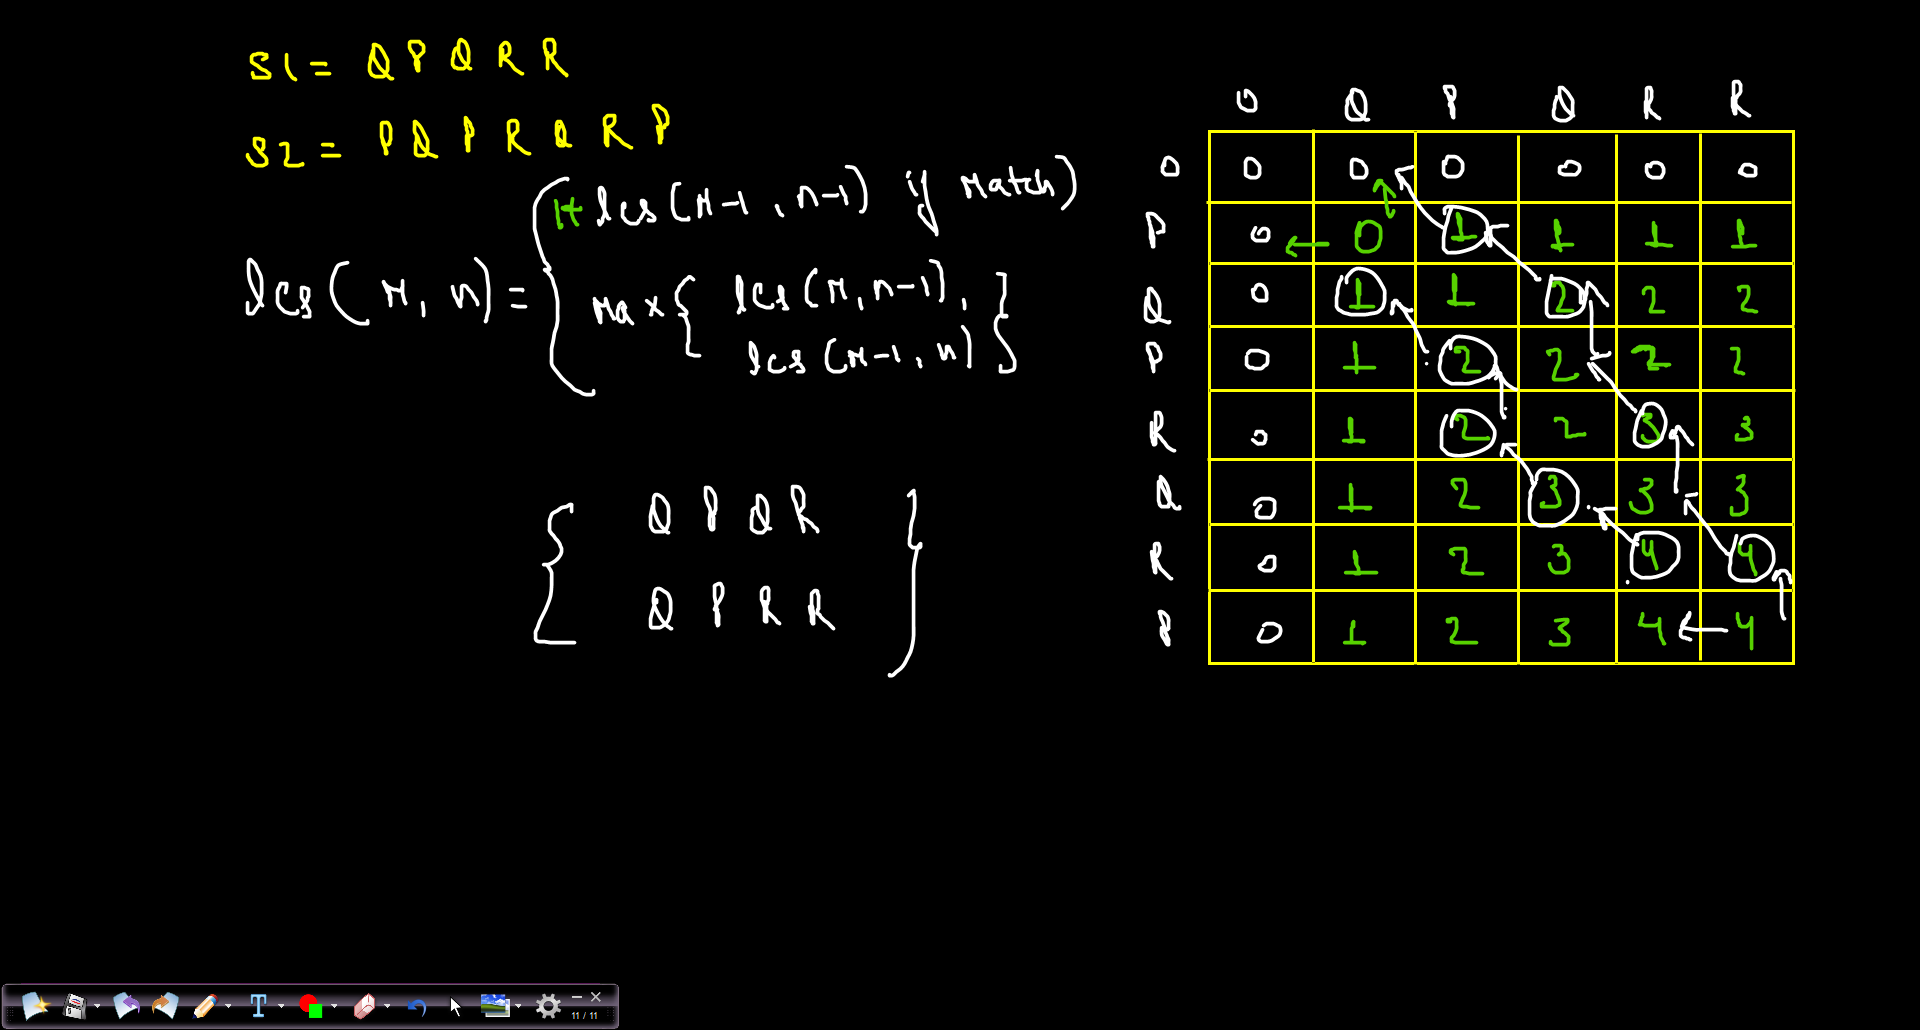 S1 = Q P Q R R
S2 = P Q P R Q R P
lcs(M, n) =
1+ lcs(M-1, n-1) if Match)
Max { lcs(M, n-1),
lcs(M-1, n) }
{ Q P Q R
Q P R R }
0 Q P Q R R
0 0 0 0 0 0 0
P 0 0 1 1 1 1
Q 0 1 1 2 2 2
P 0 1 2 2 2 2
R 0 1 2 2 3 3
Q 0 1 2 3 3 3
R 0 1 2 3 4 4
P 0 1 2 3 4 4
T
11 / 11